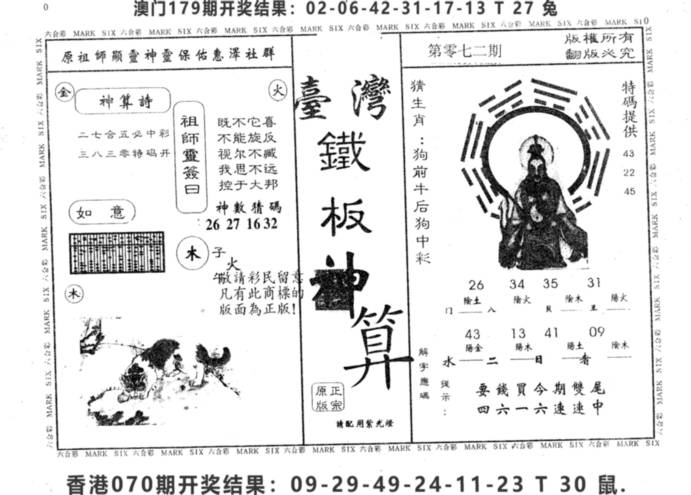 澳门179期开奖结果：02-06-42-31-17-13 T 27 兔
六合彩 MARK SIX 六合彩 MARK SIX 六合彩 MARK SIX 六合彩 MARK SIX 六合彩 MARK SIX
原祖師顯靈神靈保佑惠澤社群
金
神算詩
火
二七合五必中彩
三八三零特码开
祖師靈簽曰
既不它喜
不能旋反
视尔不臧
我思不远
控于大邦
神數猜碼
26 27 16 32
如意
木
子
火
午
木
敬請彩民留意
凡有此商標的
版面為正版!
臺灣
鐵板神算
原版
正宗
請配用紫光燈
第零七二期
版權所有
翻版必究
猜生肖：狗前牛后狗中彩
特碼提供
43
22
45
26 34 35 31
陰土 陰火 陰木 陽火
門 八 貝 丑
43 13 41 09
陽金 陽木 陽土 陰木
水 二 日 看
解字應碼
提示：
要錢買今期雙尾
四六一六連連中
香港070期开奖结果：09-29-49-24-11-23 T 30 鼠.